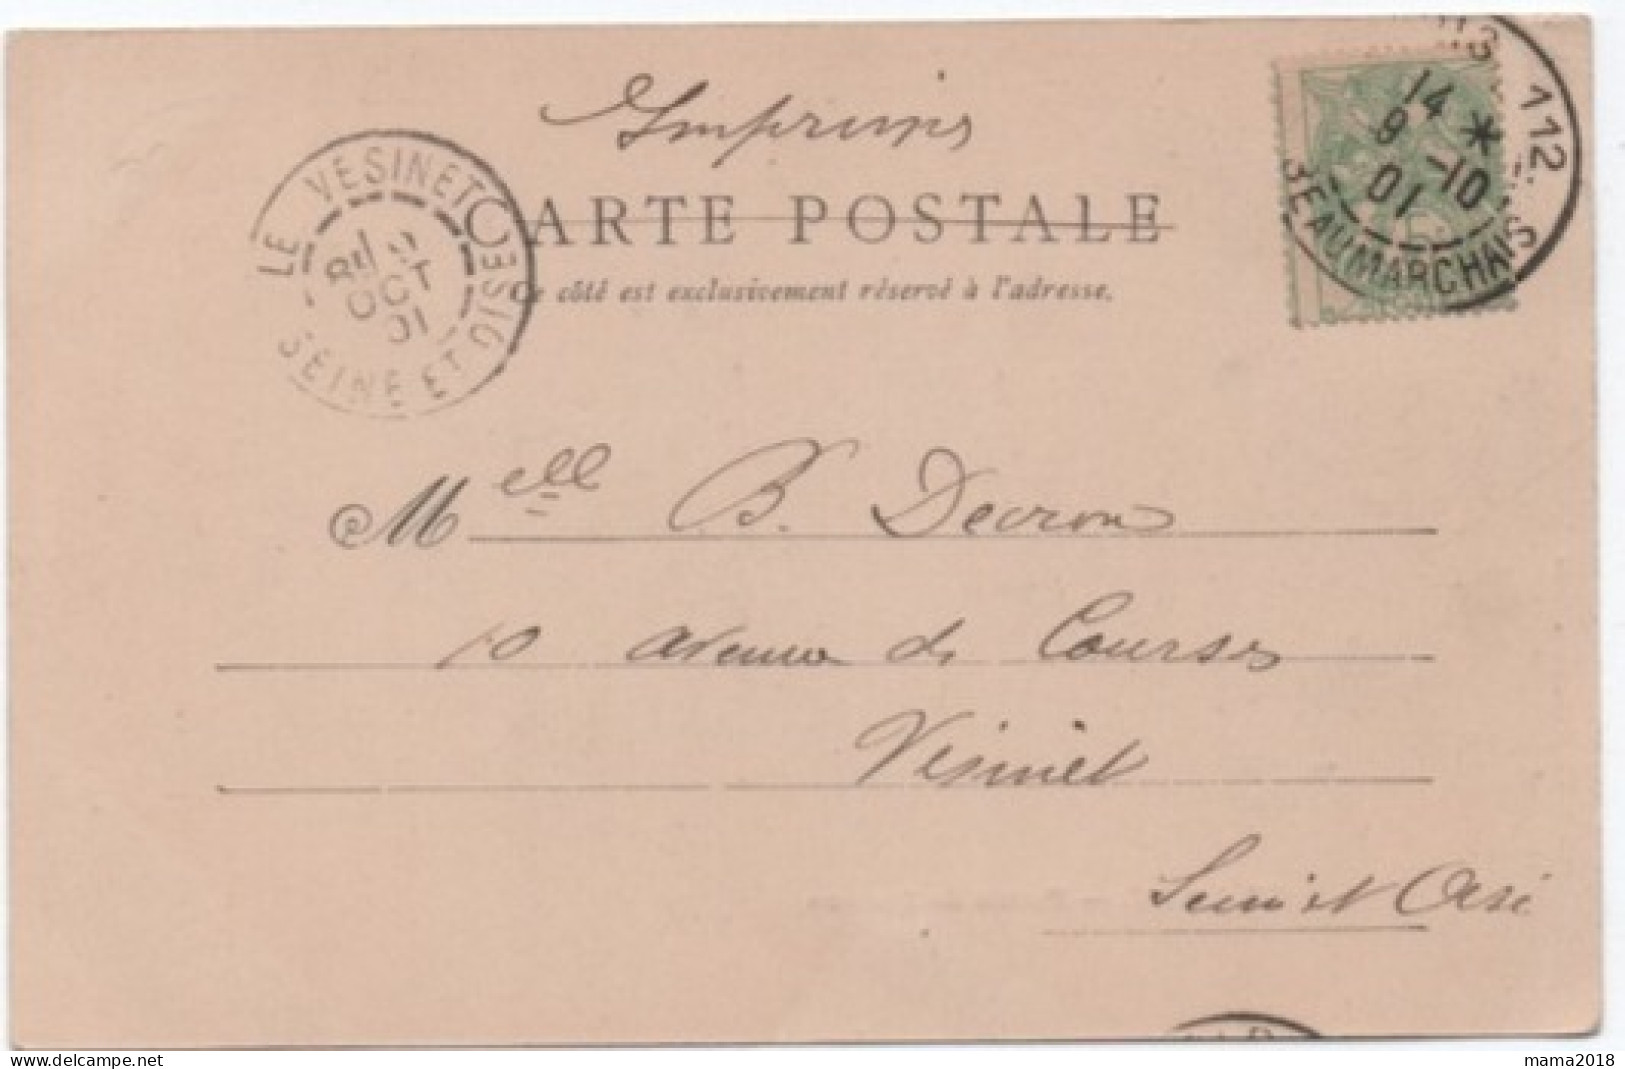 Imprimés
CARTE POSTALE
Ce côté est exclusivement réservé à l'adresse.
LE VESINET
9
OCT
01
SEINE ET OISE
112
14 *
9 -10
01
BEAUMARCHAIS
Melle B. Decron
10 avenue des Courses
Vésinet
Seine et Oise
mama2018